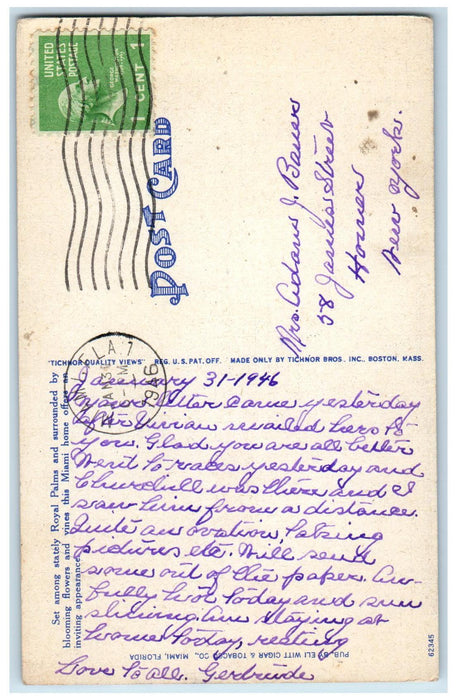 UNITED
STATES
POSTAGE
1 CENT 1
POST CARD
Mrs. Adam J. Bauer
58 James Street
Homer
New York.
"TICHNOR QUALITY VIEWS" REG. U. S. PAT. OFF. MADE ONLY BY TICHNOR BROS. INC. BOSTON, MASS.
FLA.
JAN 31
1946
Set among stately Royal Palms and surrounded by
blooming flowers and vines this Miami home offers an
inviting appearance.
January 31-1946
Your letter came yesterday
after mailed hers to
you. Glad you are all better
Went to races yesterday and
Churchill was there and I
saw him from a distance.
Quite an ovation, taking
pictures etc. Will send
some out of the paper. Aw-
fully hot today and sun
shining. Am staying at
home today, resting
Love to all. Gertrude
PUB. BY ELI WITT CIGAR & TOBACCO CO., MIAMI, FLORIDA
62345